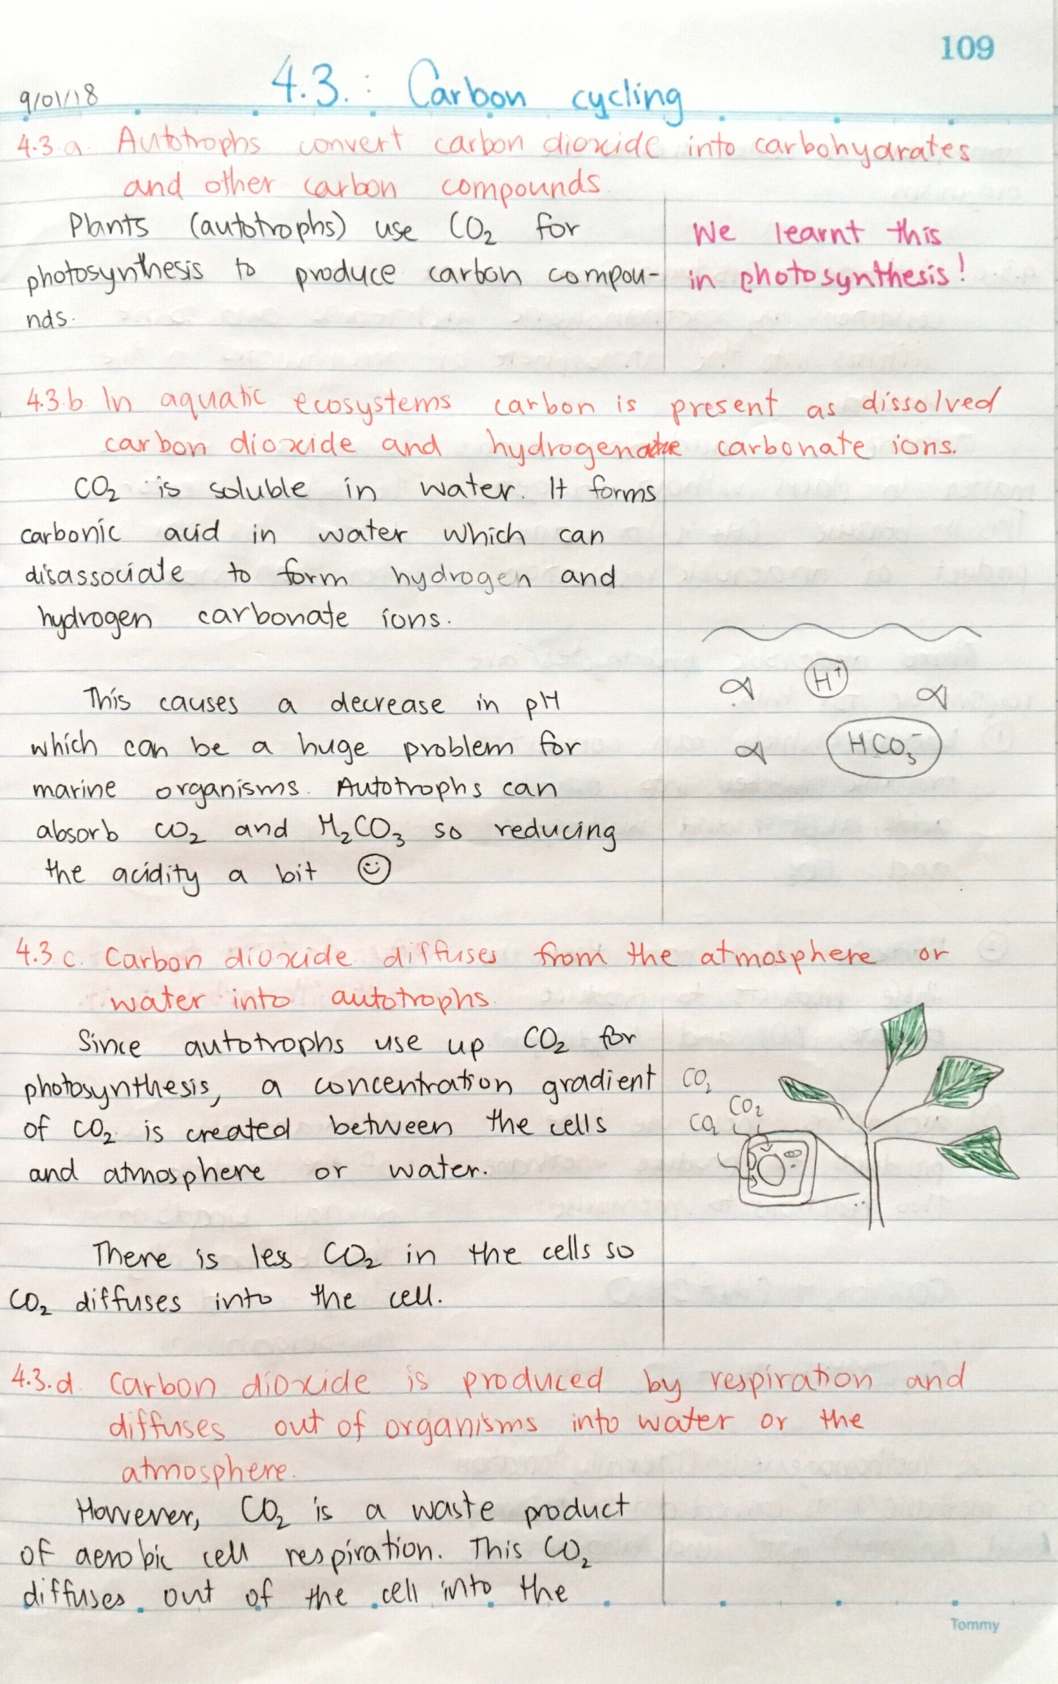 109
9/01/18
4.3.: Carbon cycling
4.3.a. Autotrophs convert carbon dioxide into carbohydrates
and other carbon compounds.
Plants (autotrophs) use CO₂ for
photosynthesis to produce carbon compou-
nds.
We learnt this
in photosynthesis!
4.3.b In aquatic ecosystems carbon is present as dissolved
carbon dioxide and hydrogen carbonate ions.
CO₂ is soluble in water. It forms
carbonic acid in water which can
disassociate to form hydrogen and
hydrogen carbonate ions.
This causes a decrease in pH
which can be a huge problem for
marine organisms. Autotrophs can
absorb CO₂ and H₂CO₃ so reducing
the acidity a bit ☺
H⁺
HCO₃⁻
4.3 c. Carbon dioxide diffuses from the atmosphere or
water into autotrophs.
Since autotrophs use up CO₂ for
photosynthesis, a concentration gradient
of CO₂ is created between the cells
and atmosphere or water.
There is less CO₂ in the cells so
CO₂ diffuses into the cell.
CO₂
CO₂
CO₂
4.3.d. Carbon dioxide is produced by respiration and
diffuses out of organisms into water or the
atmosphere.
However, CO₂ is a waste product
of aerobic cell respiration. This CO₂
diffuses out of the cell into the
Tommy